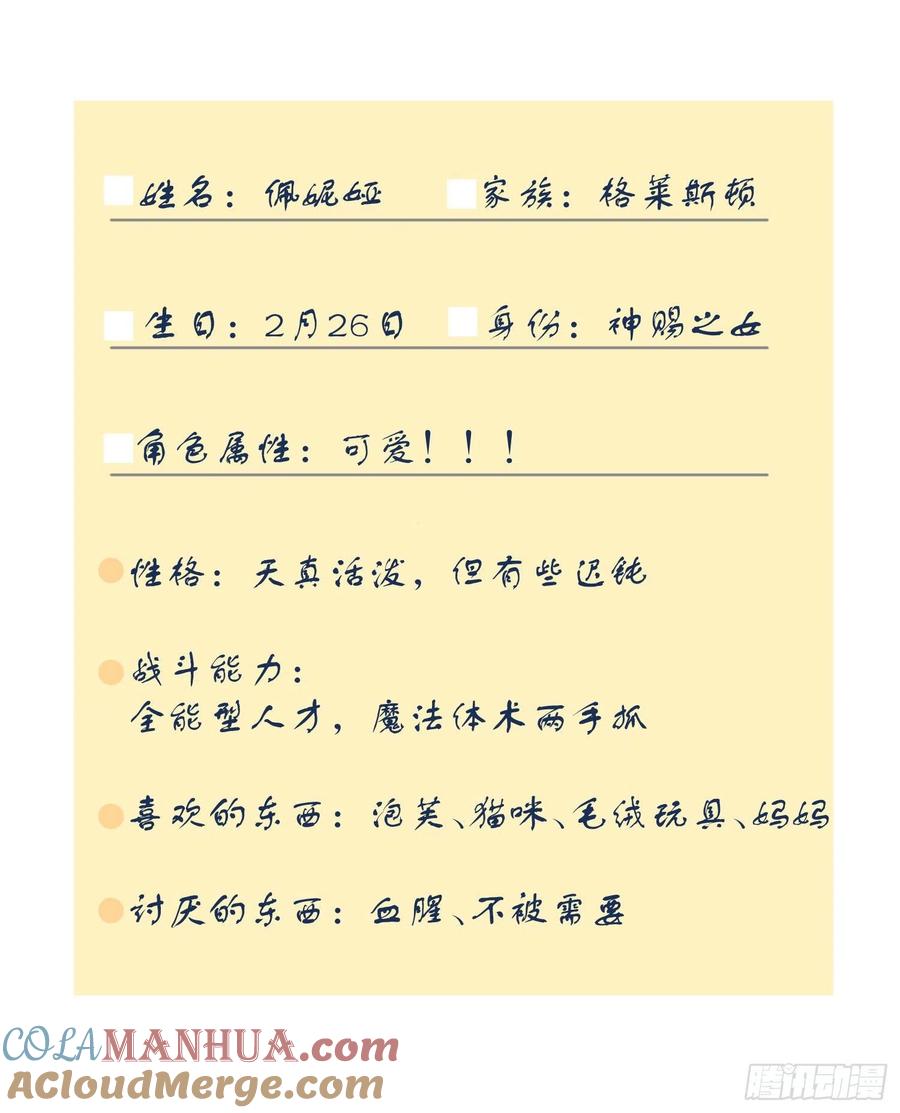 姓名：佩妮娅 家族：格莱斯顿
生日：2月26日 身份：神赐之女
角色属性：可爱！！！
性格：天真活泼，但有些迟钝
战斗能力：
全能型人才，魔法体术两手抓
喜欢的东西：泡芙、猫咪、毛绒玩具、妈妈
讨厌的东西：血腥、不被需要
COLAMANHUA.com
ACloudMerge.com
腾讯动漫